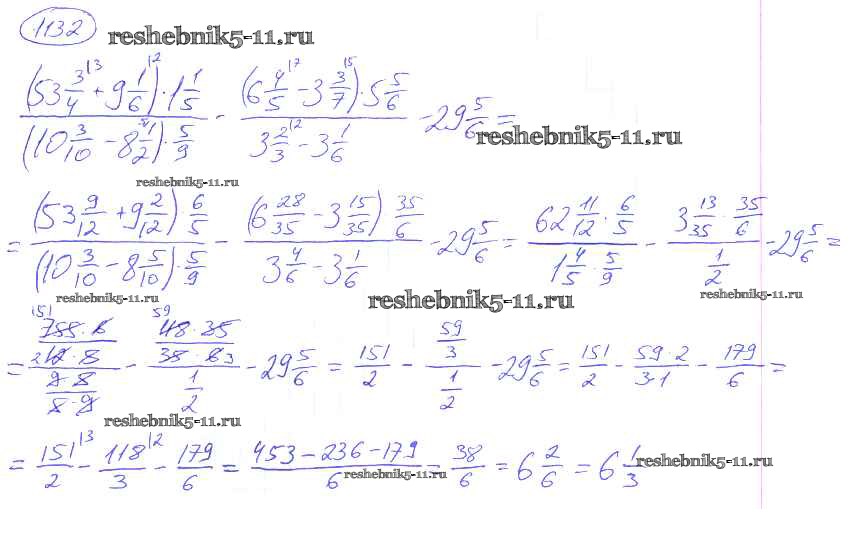 1132 reshebnik5-11.ru
((53 3/4 + 9 1/6) · 1 1/5) / ((10 3/10 - 8 1/2) · 5/9) - ((6 4/5 - 3 3/7) · 5 5/6) / (3 2/3 - 3 1/6) - 29 5/6 =
reshebnik5-11.ru
reshebnik5-11.ru
= ((53 9/12 + 9 2/12) · 6/5) / ((10 3/10 - 8 5/10) · 5/9) - ((6 28/35 - 3 15/35) · 35/6) / (3 4/6 - 3 1/6) - 29 5/6 = (62 11/12 · 6/5) / (1 4/5 · 5/9) - (3 13/35 · 35/6) / (1/2) - 29 5/6 =
reshebnik5-11.ru reshebnik5-11.ru reshebnik5-11.ru
- 29 5/6 = 151/2 - (59/3) / (1/2) - 29 5/6 = 151/2 - (59 · 2)/(3 · 1) - 179/6 =
reshebnik5-11.ru
= 151/2 - 118/3 - 179/6 = (453 - 236 - 179)/6 = 38/6 = 6 2/6 = 6 1/3
reshebnik5-11.ru reshebnik5-11.ru